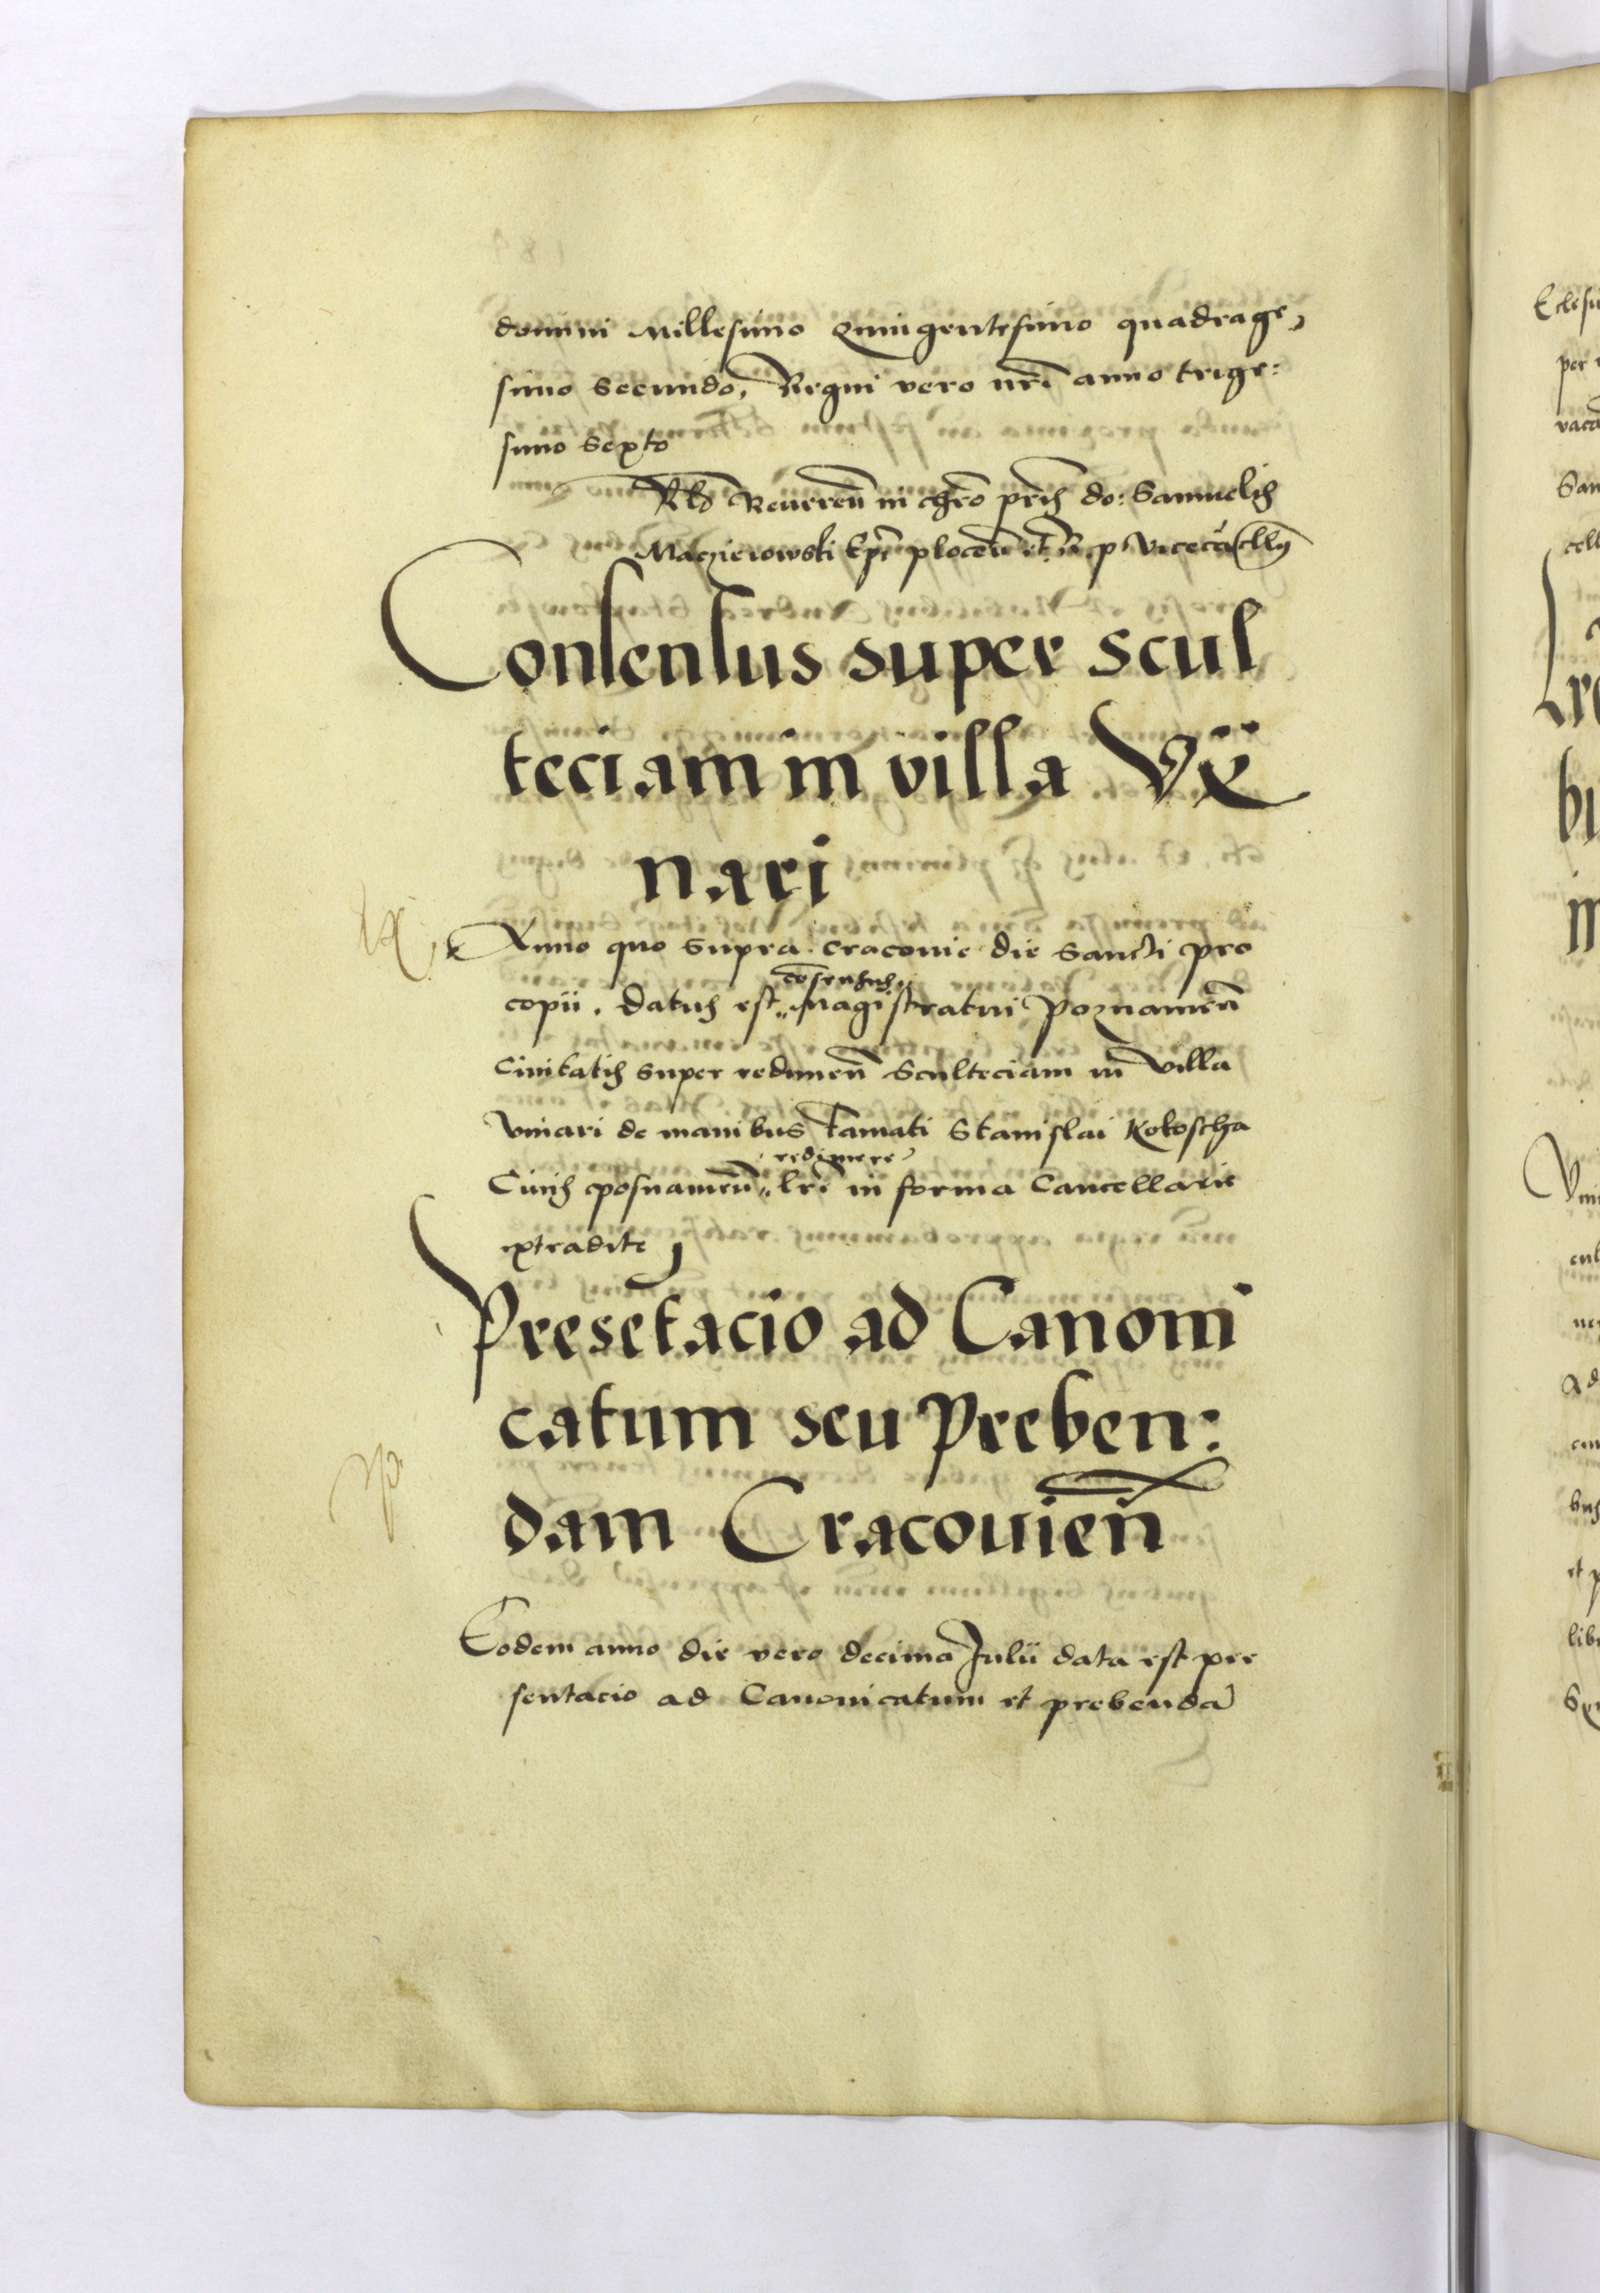 domini Millesimo Quingentesimo quadrage,
simo Secundo, Regni vero nrī anno trige:
simo Sexto
Reuerēn in chrō prīs do: Samuelis
Maczieiowski Epī plocēn
Consensus super scul
teciam in villa
nari
Anno quo supra Cracovie die Sancti Pro
consensus
copii. Datus est magistratui Poznanieñ
Ciuitatis super redimeñ Scultetiam in Villa
Viniari de manibus famati Stanislai Kokoscha
redimere
Ciuis posnanieñ lrē in forma Cancellarie
extradite
Presētacio ad Canoni
catum seu Preben:
dam Cracouieñ
Eodem anno die vero decima Julii data est pre
sentacio ad Canonicatum et prebendā